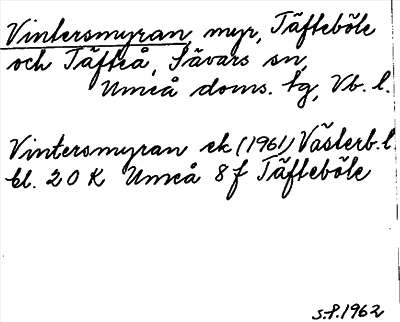 Vintersmyran, myr, Täfteböle
och Täfteå, Sävars sn,
Umeå doms. tg, Vb. l.
Vintersmyran ek (1961) Västerb. l.
bl. 20 K Umeå 8 f Täfteböle
S.P. 1962